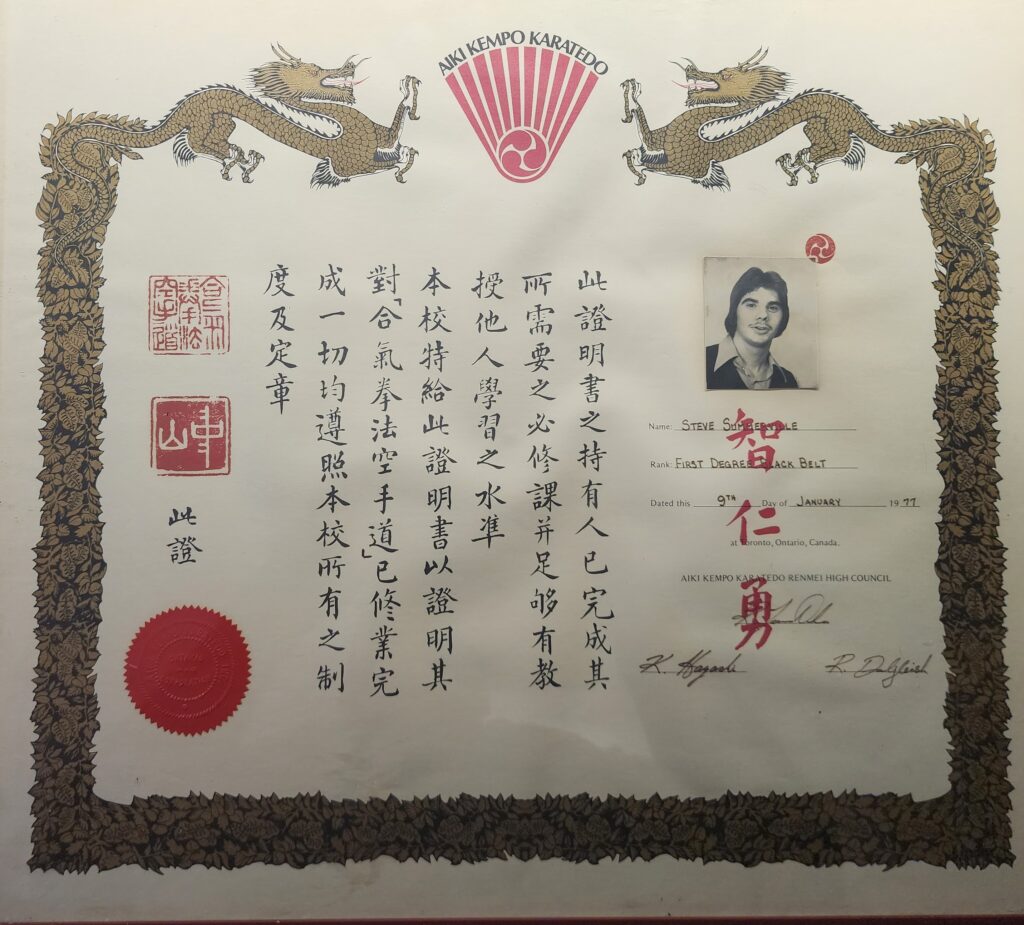 AIKI KEMPO KARATEDO
Name: STEVE SUMMERVILLE
Rank: FIRST DEGREE BLACK BELT
Dated this 9TH Day of JANUARY 1977
at Toronto, Ontario, Canada.
AIKI KEMPO KARATEDO RENMEI HIGH COUNCIL
K. Hayashi
R. Dalgleish
智仁勇
此證明書之持有人已完成其
所需要之必修課并足够有教
授他人學習之水準
本校特給此證明書以證明其
對「合氣拳法空手道」已修業完
成一切均遵照本校所有之制
度及定章
此證